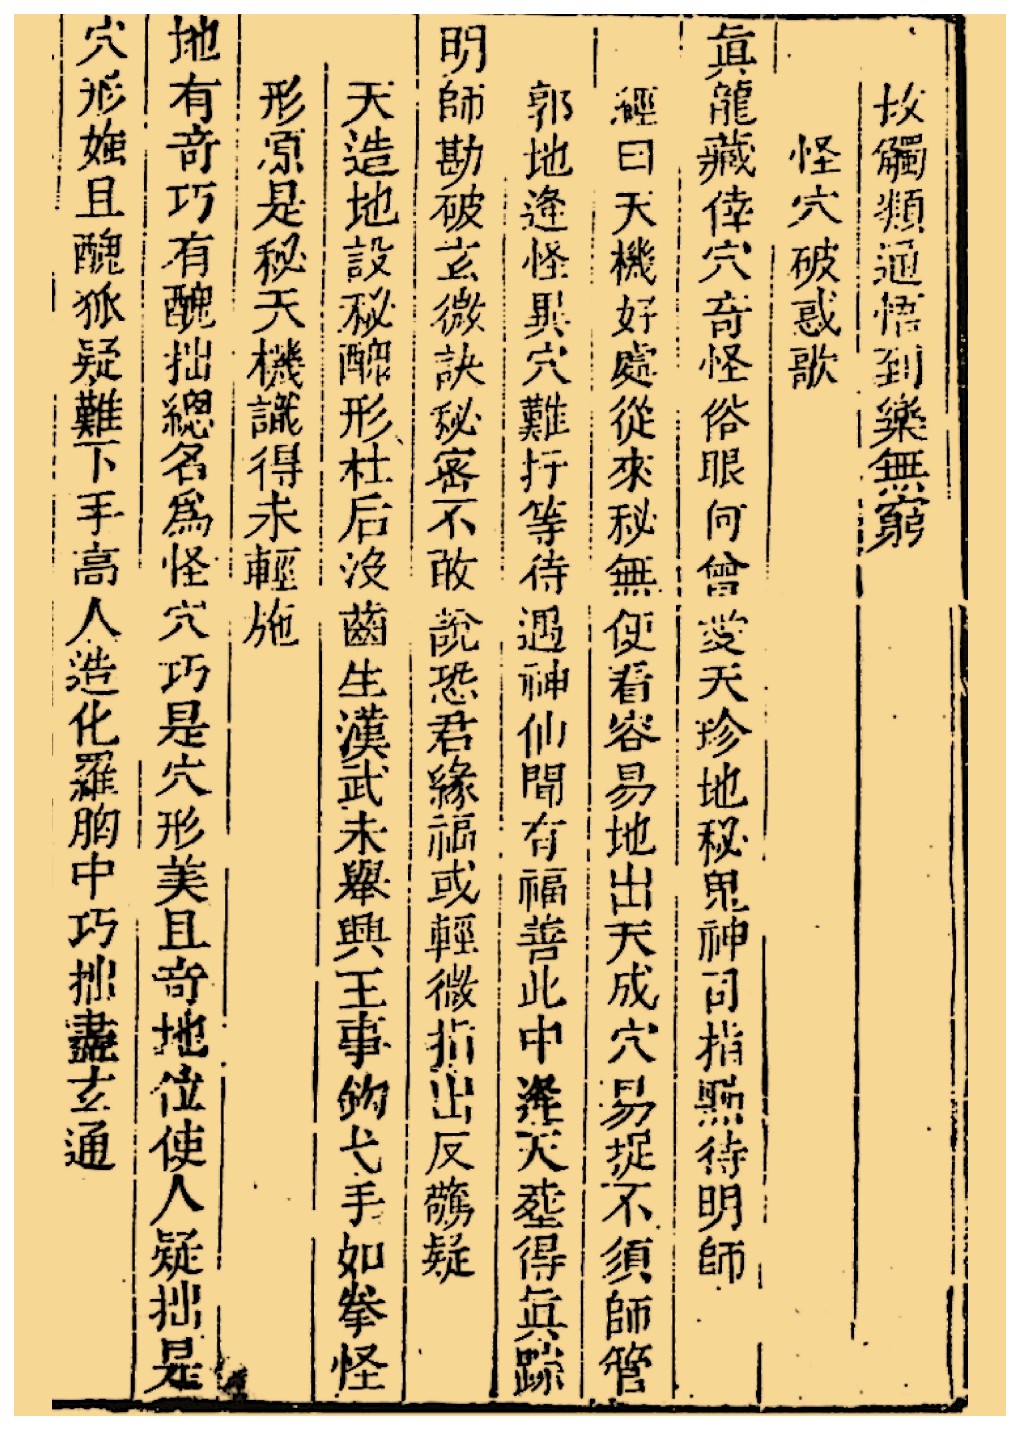 故觸類通悟到藥無窮
怪穴破惑歌
眞龍藏倖穴奇怪俗眼何曾愛天珍地秘鬼神司指㸃待明師
經曰天機好處從來秘無便看容易地出天成穴易捉不須師管
郭地逢怪異穴難扦等待遇神仙間有福善此中逢天塟得眞踪
明師勘破玄微訣秘密不敢說恐君緣福或輕微指出反驚疑
天造地設秘醜形杜后沒齒生漢武未舉興王事鈎弋手如拳怪
形原是秘天機識得未輕施
地有奇巧有醜拙總名爲怪穴巧是穴形美且奇地位使人疑拙是
穴形媸且醜狐疑難下手高人造化羅胸中巧拙盡玄通